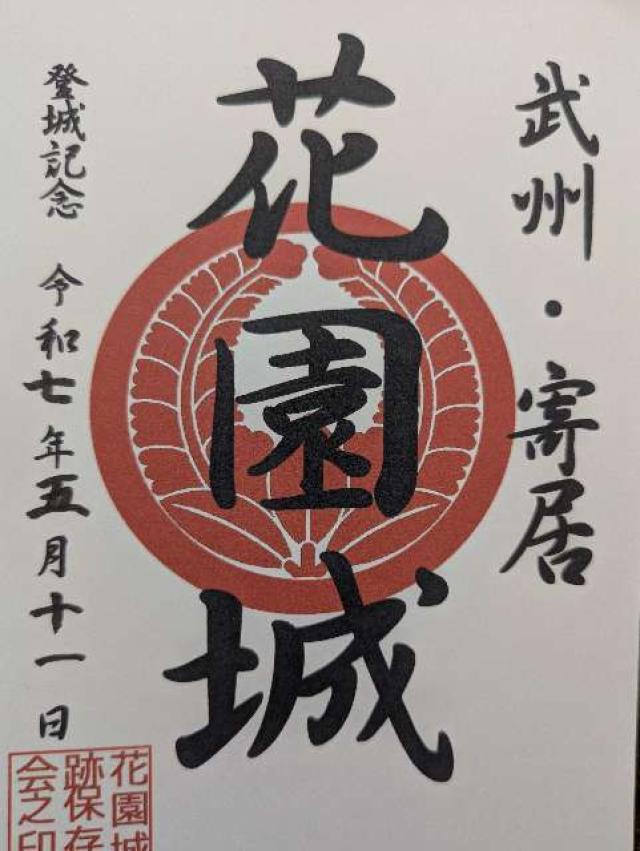 武州・寄居
花園城
登城記念 令和七年五月十一日
花園城
跡保存
会之印